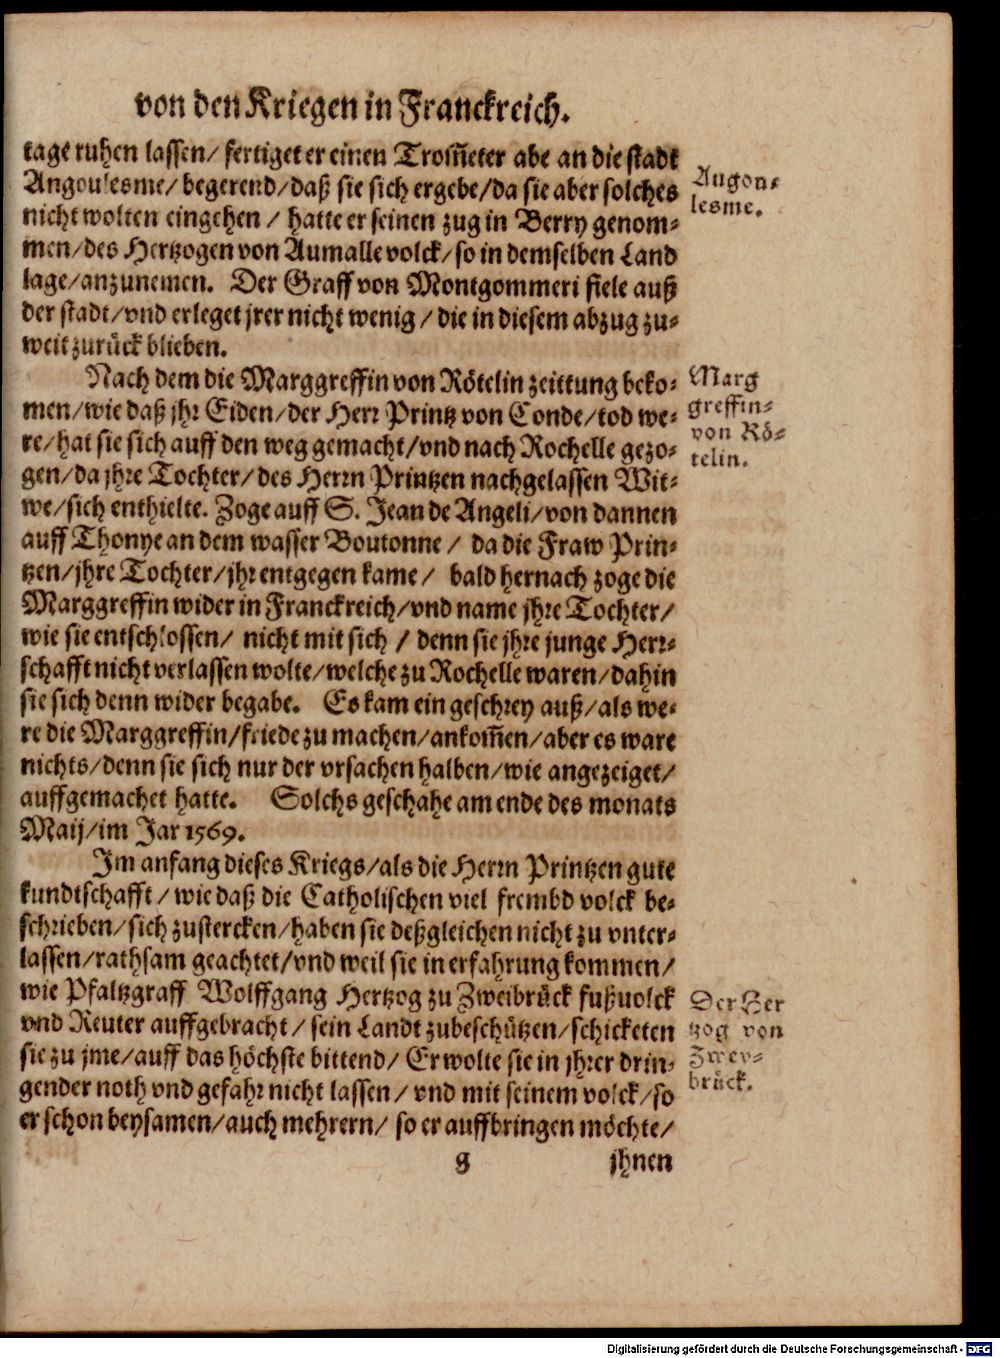 von den Kriegen in Franckreich.
tage ruhen lassen/ fertiget er einen Trom̃eter abe an die stadt
Angoulesme/ begerend/ daß sie sich ergebe/ da sie aber solches
nicht wolten eingehen / hatte er seinen zug in Berry genom-
men/ des Hertzogen von Aumalle volck/ so in demselben Land
lage/ anzunemen. Der Graff von Montgommeri fiele auß
der stadt/ vnd erleget jrer nicht wenig / die in diesem abzug zu-
weit zurück blieben.
Angou-
lesme.
Nach dem die Marggreffin von Rötelin zeittung beko-
men/ wie daß jhr Eiden/ der Herr Printz von Conde/ tod we-
re/ hat sie sich auff den weg gemacht/ vnd nach Rochelle gezo-
gen/ da jhre Tochter/ des Herrn Printzen nachgelassen Wit-
we/ sich enthielte. Zoge auff S. Jean de Angeli/ von dannen
auff Thonye an dem wasser Boutonne / da die Fraw Prin-
tzen/ jhre Tochter/ jhr entgegen kame / bald hernach zoge die
Marggreffin wider in Franckreich/ vnd name jhre Tochter/
wie sie entschlossen/ nicht mit sich / denn sie jhre junge Herr-
schafft nicht verlassen wolte/ welche zu Rochelle waren/ dahin
sie sich denn wider begabe. Es kam ein geschrey auß/ als we-
re die Marggreffin/ friede zu machen/ ankom̃en/ aber es ware
nichts/ denn sie sich nur der vrsachen halben/ wie angezeiget/
auffgemachet hatte. Solchs geschahe am ende des monats
Maij/ im Jar 1569.
Marg
greffin-
von Rö-
telin.
Im anfang dieses Kriegs/ als die Herrn Printzen gute
kundtschafft / wie daß die Catholischen viel frembd volck be-
schrieben/ sich zustercken/ haben sie deßgleichen nicht zu vnter-
lassen/ rathsam geachtet/ vnd weil sie in erfahrung kommen/
wie Pfaltzgraff Wolffgang Hertzog zu Zweibrück fußuolck
vnd Reuter auffgebracht / sein Landt zubeschützen/ schicketen
sie zu jme/ auff das höchste bittend/ Er wolte sie in jhrer drin-
gender noth vnd gefahr nicht lassen / vnd mit seinem volck/ so
er schon beysamen/ auch mehrern/ so er auffbringen möchte/
Der Her
tzog von
Zwey-
brück.
g jhnen
Digitalisierung gefördert durch die Deutsche Forschungsgemeinschaft - DFG